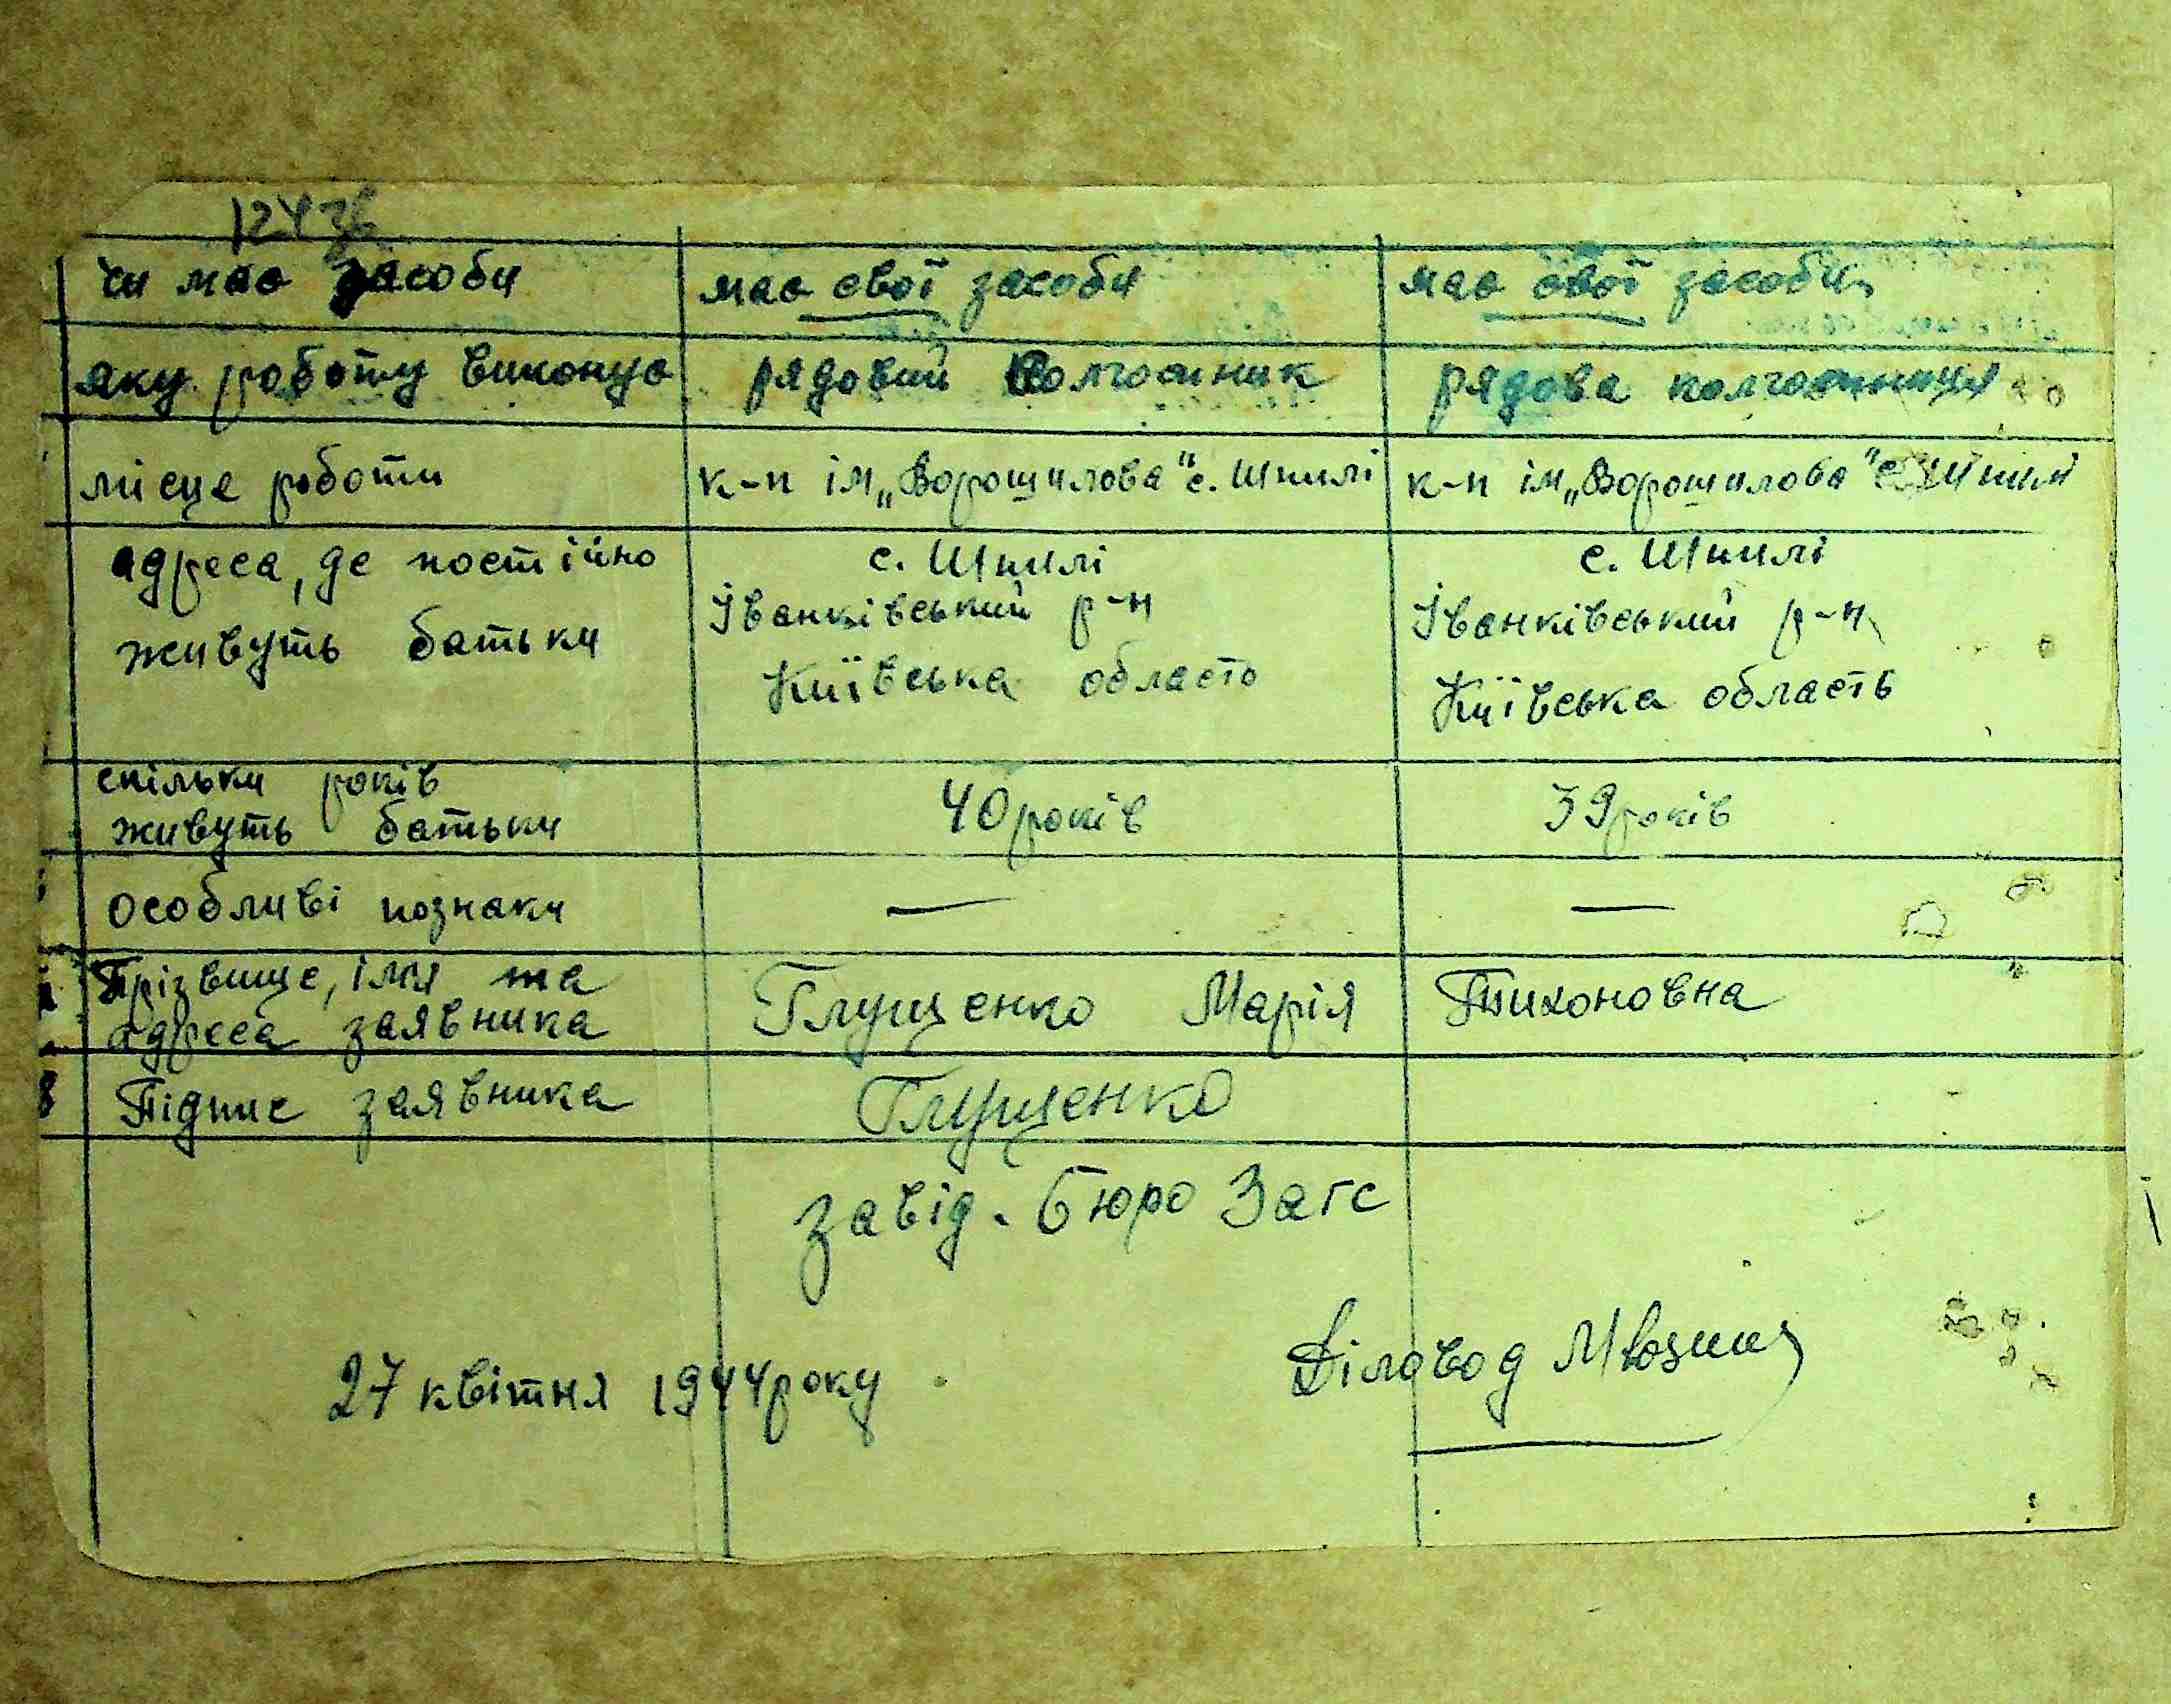 124зв
чи має засоби має свої засоби має свої засоби
яку роботу виконує рядовий колгосник рядова колгосниця
місце роботи к-п ім „Ворошилова" с. Шпилі к-п ім „Ворошилова" с. Шпилі
адреса, де постійно с. Шпилі с. Шпилі
живуть батьки Іванківський р-н Іванківський р-н
Київська область Київська область
скільки років
живуть батьки 40 років 39 років
особливі познаки — —
Прізвище, імя та
адреса заявника Глущенко Марія Тихоновна
Підпис заявника Глущенко
завід. бюро Загс
27 квітня 1944 року Діловод